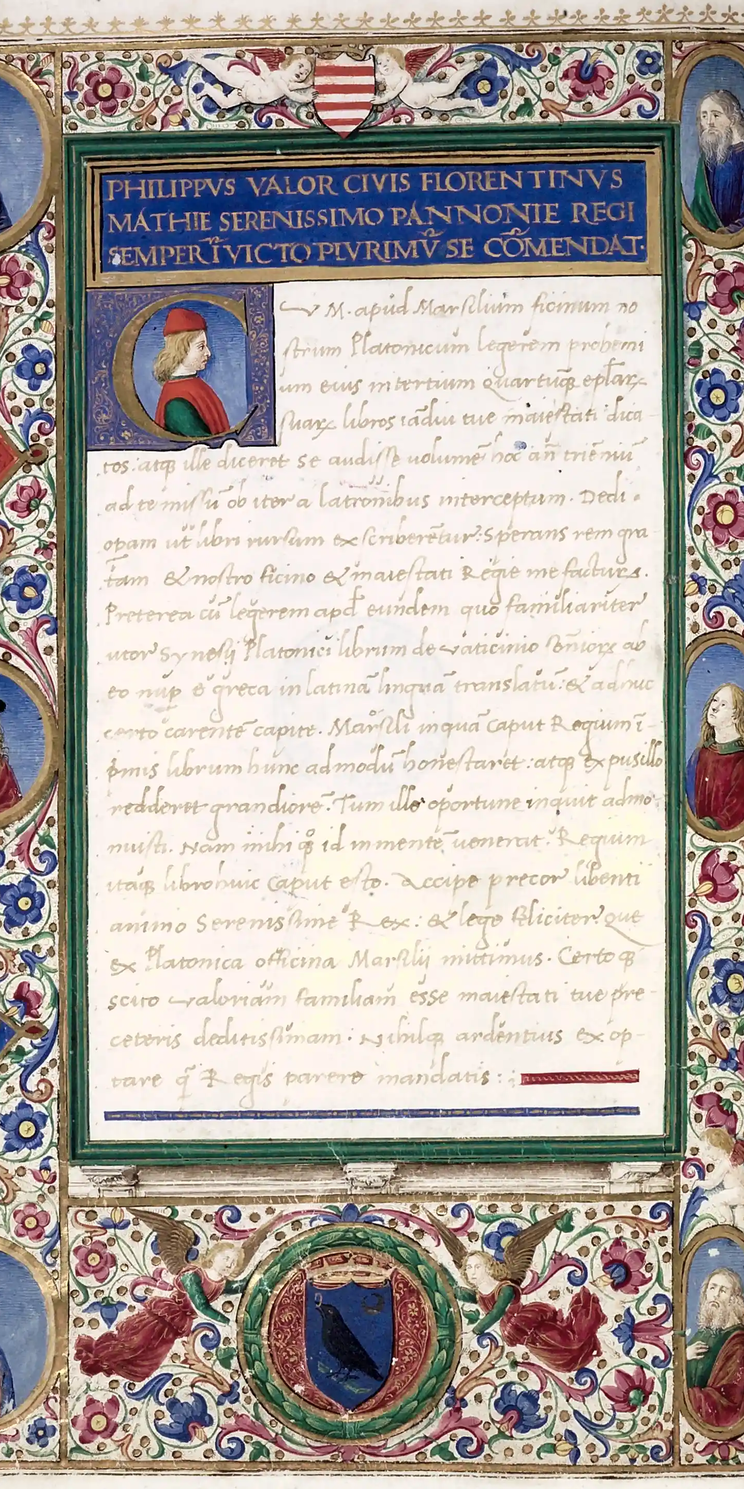 PHILIPPVS VALOR CIVIS FLORENTINVS
MATHIE SERENISSIMO PANNONIE REGI
SEMPER ĪVICTO PLVRIMV̄ SE CO͂MENDAT·
CV M. apud Marsilium ficinum no
strum Platonicum legerem prohemi
um eius in tertium Quartūq; epl̄arꝝ
suarꝝ libros iādiu tue maiestati dica-
tos: atq; ille diceret se audisse volumē hoc an̄ trienniū
ad te missū ob iter a latronibus interceptum. Dedi
opam ut libri rursum exscriberētur: Sperans rem gra
tam & nostro ficino & maiestati Regie me facturū.
Preterea cū legerem apd̄ eundem quo familiariter
utor Synesij Platonici librum de vaticinio som̄niorꝝ ab
eo nup̄ e greca in latinā linguā translatū: & adhuc
certo carentē capite. Marsili inquā Caput Regium ī-
pmis librum hunc admodū honestaret: atq; ex pusillo
redderet grandiorē. Tum ille oportune inquit admo-
nuisti. Nam mihi qq; id in mentē venerat. Regium
itaq; libro huic Caput esto. Accipe precor libenti
animo Serenissime Rex: & lege feliciter. Que
ex Platonica officina Marsilij mittimus. Certoq;
scito valoriam familiam esse maiestati tue pre-
ceteris deditissimam. Nihilq; ardentius ex op-
tare q̄ Regis parere mandatis: